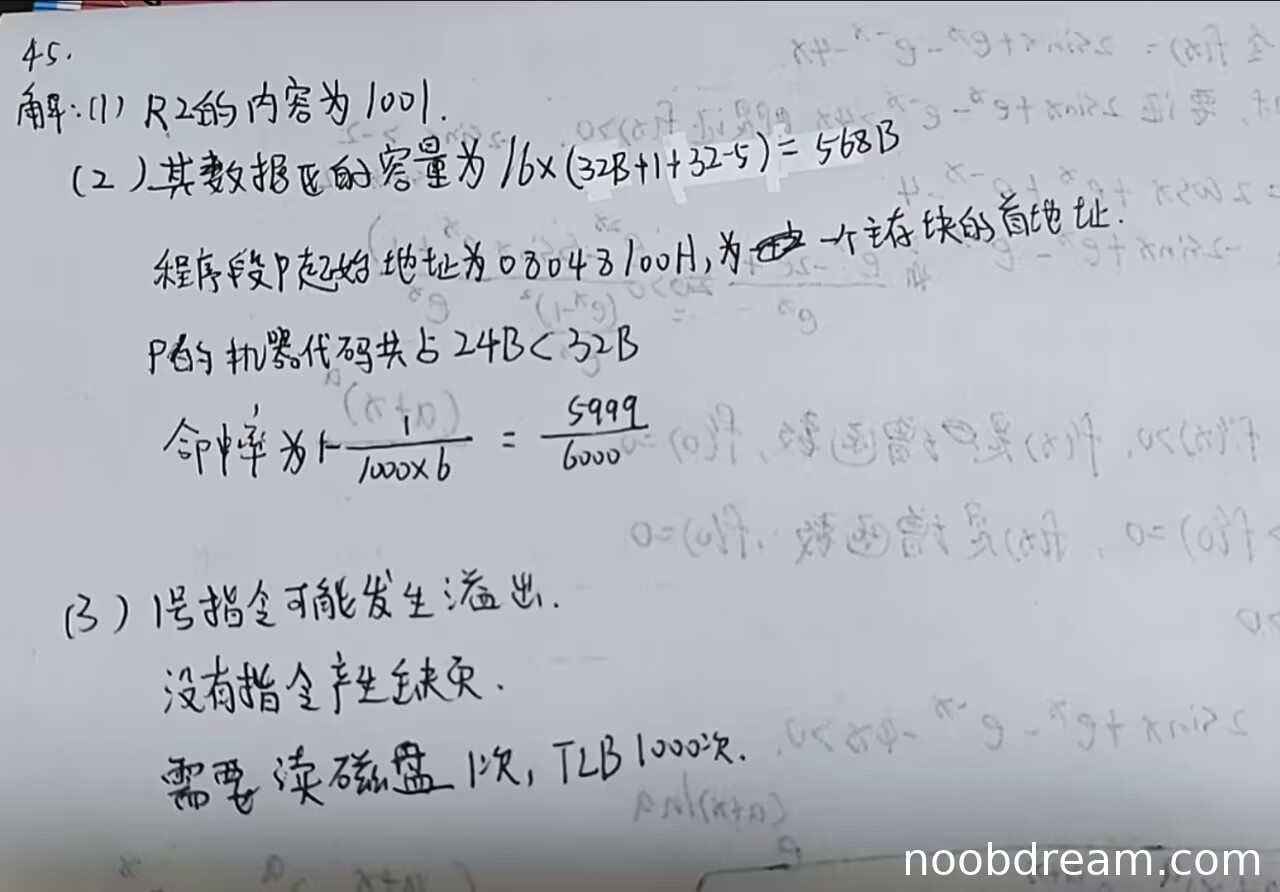 45.
解:(1) R2的内容为1001.
(2) 其数据区的容量为16×(32B+1+32-5)=568B
程序段P起始地址为08048100H,为一个主存块的首地址.
P的机器代码共占24B<32B
命中率为1-1/1000×6 = 5999/6000
(3) 1号指令可能发生溢出.
没有指令产生缺页.
需要读磁盘1次,TLB1000次.
noobdream.com